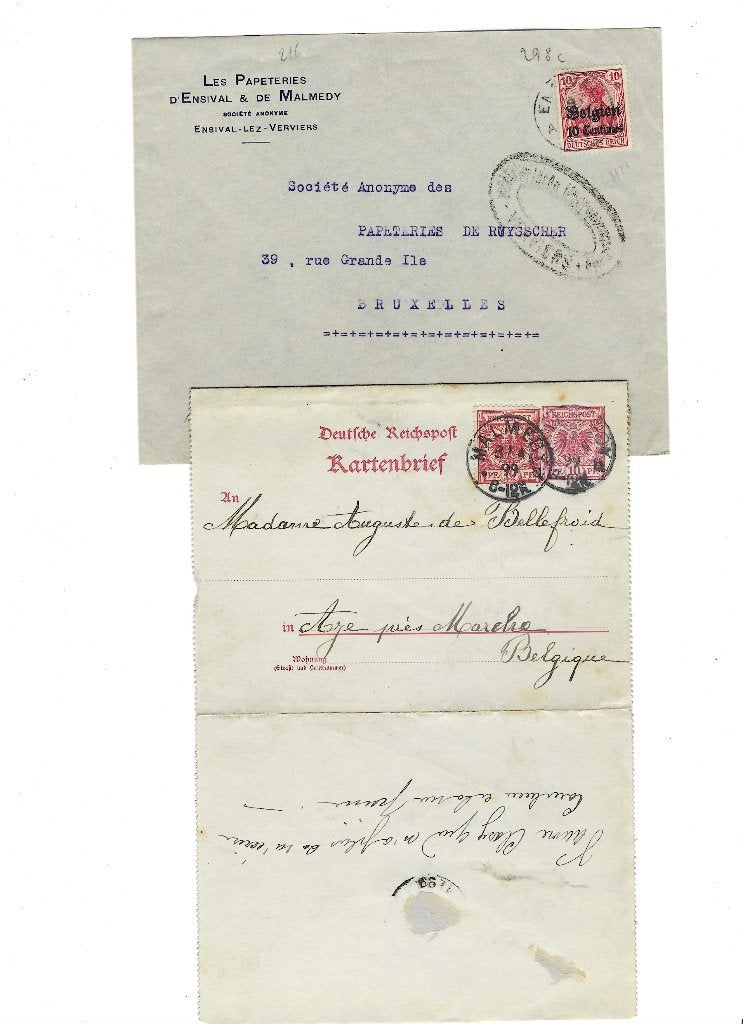 216
298 c
LES PAPETERIES
D'ENSIVAL & DE MALMEDY
SOCIÉTÉ ANONYME
ENSIVAL-LEZ-VERVIERS
10 10
Belgien
10 Centimes
DEUTSCHES REICH
Société Anonyme des
PAPETERIES DE RUYSSCHER
39 , rue Grande Ile
BRUXELLES
=+=+=+=+=+=+=+=+=+=+=+=+=
VERVIERS
Deutsche Reichspost
Kartenbrief
REICHSPOST
10
MALMEDY
99
6-12N
An
Madame Auguste de Bellefroid
in Aye près Marche
Wohnung
(Straße und Hausnummer)
Belgique
1899